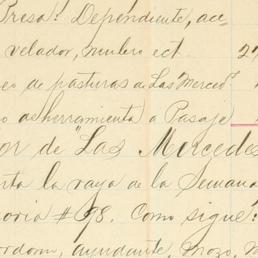 Presa! Dependiente, ace-
velador, mulero ect. 2
es de pasturas a Las Merced.
o as herramienta a Pasaje
or de "Las Mercedes
nta la raya de la Semana
oria #98. Como sigue:
ordom, ayudante, Mozo, M